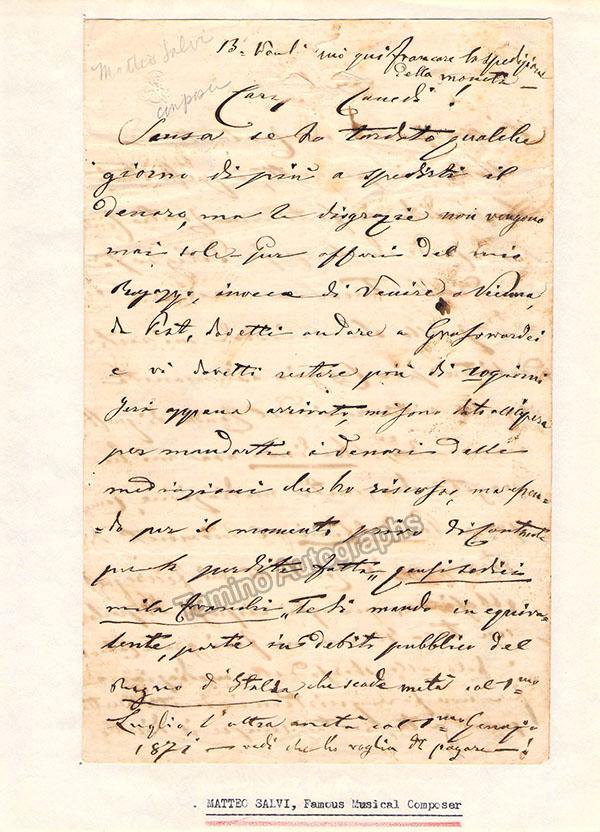 Matteo Salvi
composer
13. vuol mò qui francare la spedizione
della moneta
Caro Canedi!
Scusa se ho tardato qualche
giorno di più a spedirti il
denaro, ma le disgrazie non vengono
mai sole. Per affari del mio
Ragazzo, invece di venire a Vienna,
da Pest, dovetti andare a Groswardei
e vi dovetti restare più di 10 giorni
Jeri appena arrivato, mi sono dato all'opera
per mandarti i denari delle
mediazioni che ho riscosso, ma essen-
-do per il momento privo di contante
per le perdite fatte, quasi sedici
mila franchi, Te li mando in equiva-
lente, parte in debito pubblico del
Regno d'Italia, che scade metà col 1mo
Luglio, l'altra metà col 1mo Genajo
1871 – vedi che ho voglia di pagare!
Tamino Autographs
. MATTEO SALVI, Famous Musical Composer